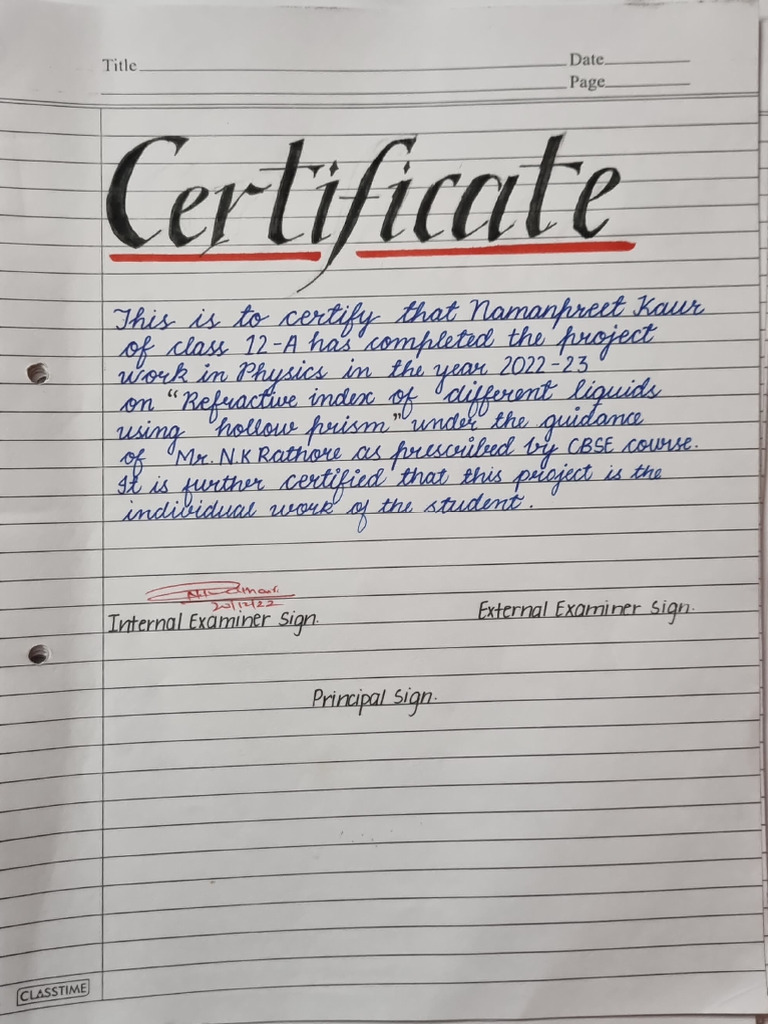 Title
Date
Page
Certificate
This is to certify that Namanpreet Kaur
of class 12-A has completed the project
work in Physics in the year 2022-23
on "Refractive index of different liquids
using hollow prism" under the guidance
of Mr. N.K Rathore as prescribed by CBSE course.
It is further certified that this project is the
individual work of the student.
20/12/22
Internal Examiner Sign.
External Examiner Sign.
Principal Sign.
CLASSTIME